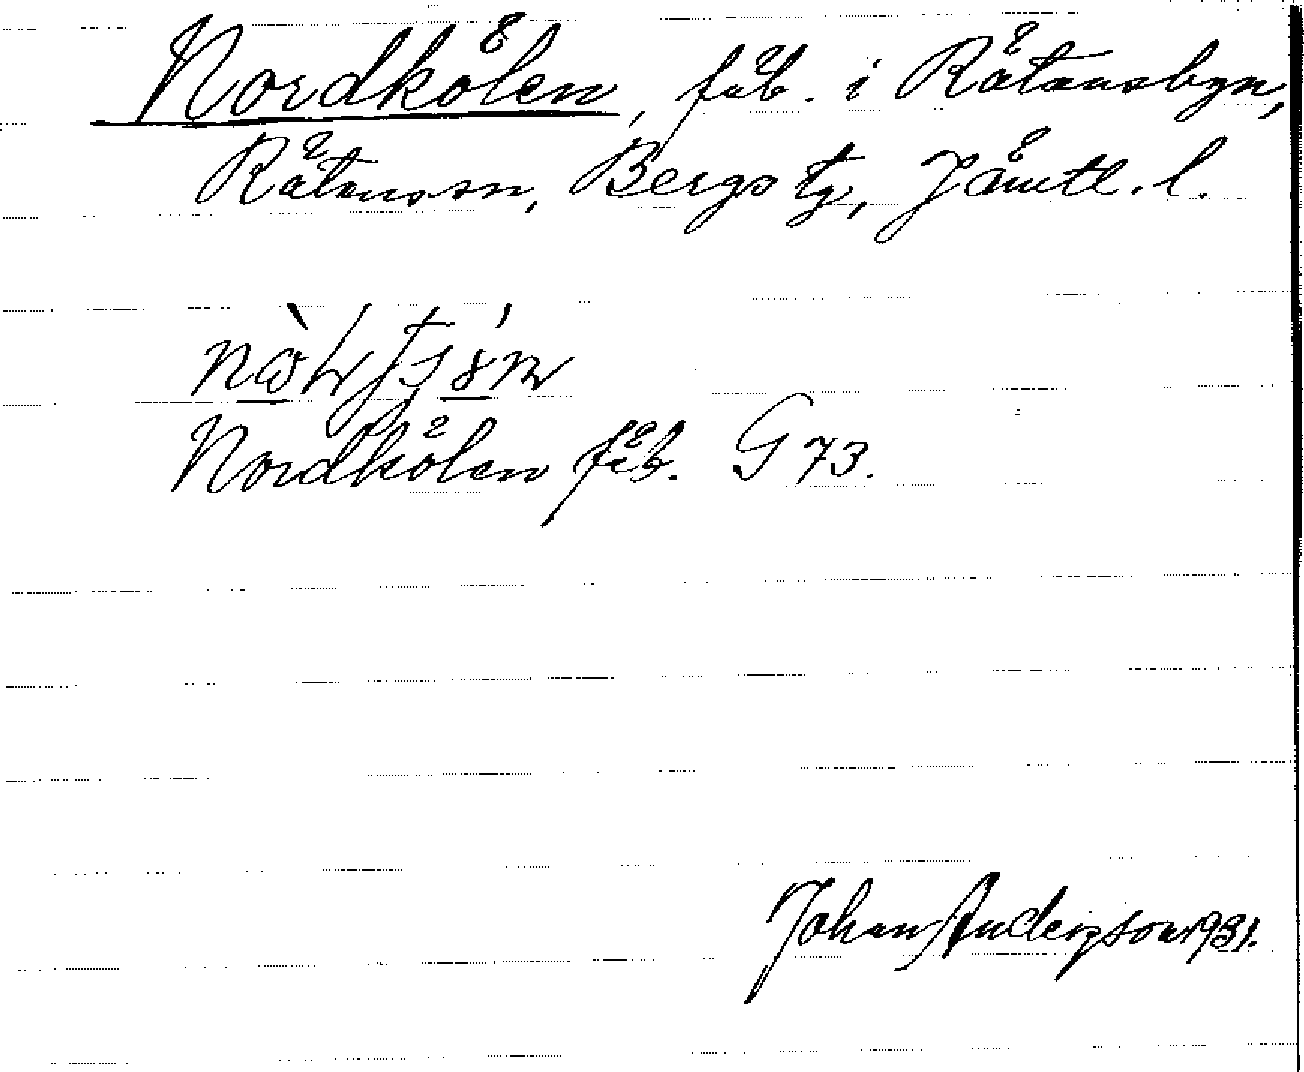 Nordkölen, fäb. i Rätansbyn,
Rätans sn, Bergs tg, Jämtl. l.
Nordkölen fäb. G 73.
Johan Anderzson 1931.